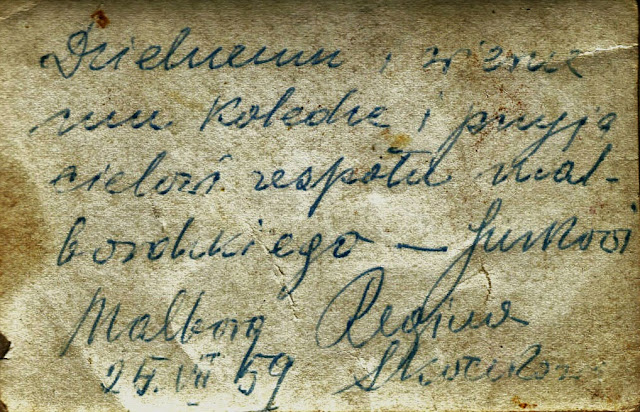 Dzielnemu i wierne
mu Koledze i przyja
cielowi zespołu mal-
borskiego — Jurkowi
Malborg Regina
25. VII 59